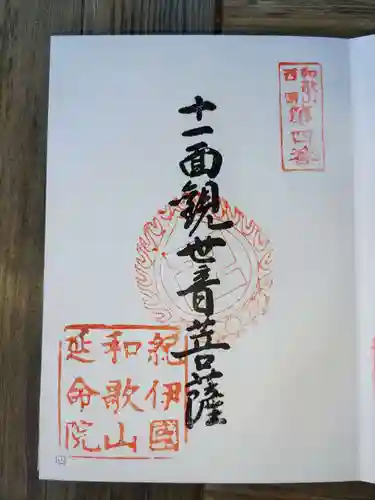 和歌山
西国第四番
十一面観世音菩薩
紀伊國
和歌山
延命院